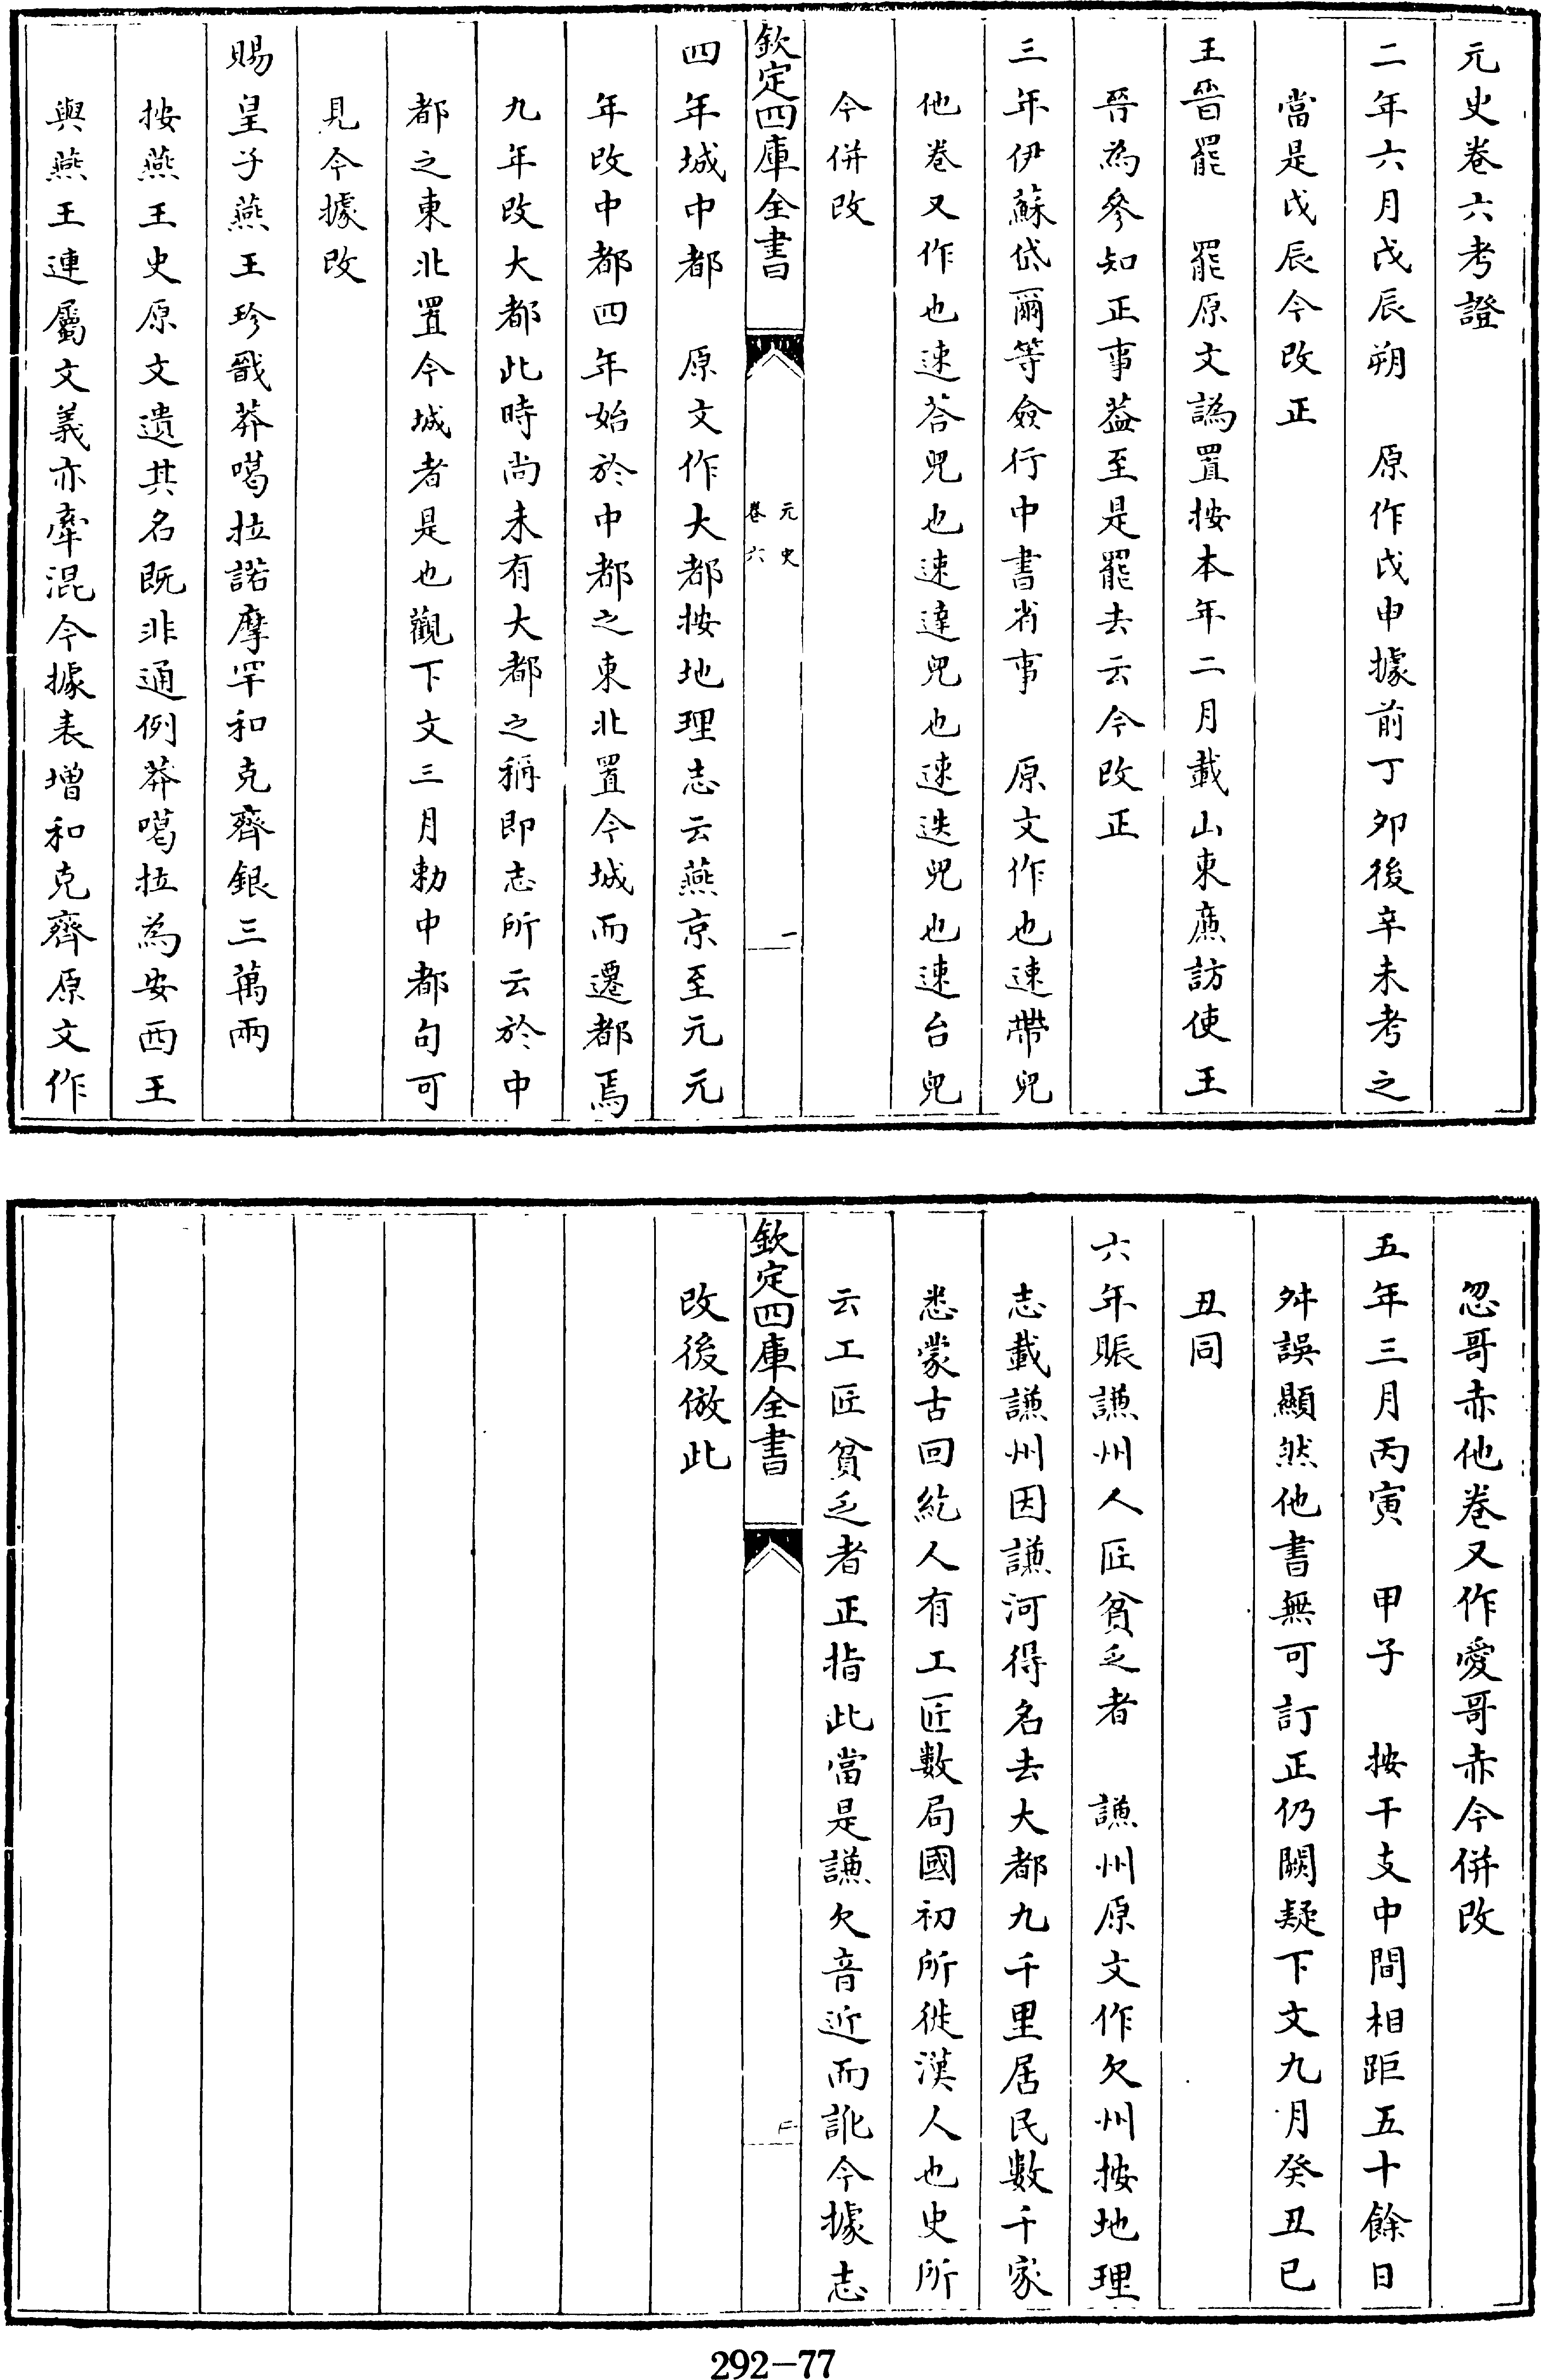 元史卷六考證
二年六月戊辰朔　原作戊申據前丁夘後辛未考之
當是戊辰今改正
王晉罷　罷原文譌置按本年二月載山東廉訪使王
晉為參知正事葢至是罷去云今改正
三年伊蘇岱爾等僉行中書省事　原文作也速帶兒
他卷又作也速荅兒也速達兒也速迭兒也速台兒
今併改
欽定四庫全書
元史
卷六
一
四年城中都　原文作大都按地理志云燕京至元元
年改中都四年始於中都之東北置今城而遷都焉
九年改大都此時尚未有大都之稱即志所云於中
都之東北置今城者是也觀下文三月勅中都句可
見今據改
賜皇子燕王珍戩莽噶拉諾摩罕和克齊銀三萬兩
按燕王史原文遺其名既非通例莽噶拉為安西王
與燕王連屬文義亦牽混今據表增和克齊原文作
忽哥赤他卷又作愛哥赤今併改
五年三月丙寅　甲子　按干支中間相距五十餘日
舛誤顯然他書無可訂正仍闕疑下文九月癸丑已
丑同
六年賑謙州人匠貧乏者　謙州原文作欠州按地理
志載謙州因謙河得名去大都九千里居民數千家
悉蒙古回紇人有工匠數局國初所徙漢人也史所
云工匠貧乏者正指此當是謙欠音近而訛今據志
欽定四庫全書
二
改後倣此
292-77